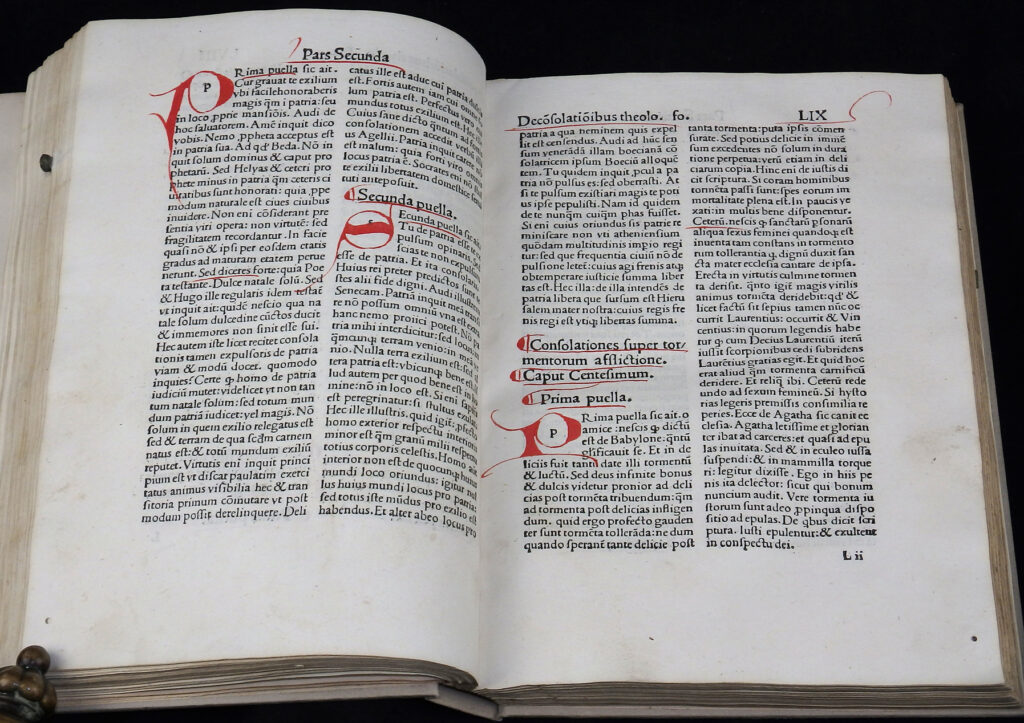 Pars Secunda
PRima puella sic ait.
Cur grauat te exilium
vbi facile honoraberis
magis qm̄ i patria: seu
in loco ꝓprie mansiōis. Audi de
hoc saluatorem. Amē inquit dico
vobis. Nemo ꝓpheta acceptus est
in patria sua. Ad qd' Beda. Nō in
quit solum dominus & caput pro
phetarū. Sed Helyas & ceteri pro
phete minus in patria qm̄ ceteris ci
uitatibus sunt honorati: quia ꝓpe
modum naturale est ciues ciuibus
inuidere. Non eni cōsiderant pre
sentia viri opera: non virtutē: sed
fragilitatem recordantur. In facie
quasi nō & ipsi per eosdem etatis
gradus ad maturam etatem perue
nerunt. Sed diceres forte: quia Poe
ta testante. Dulce natale solū. Sed
& Hugo ille regularis idem testat
vt inquit ait: quidē nescio qua na
tale solum dulcedine cūctos ducit
& immemores non sinit esse sui.
Hec autem iste licet recitet consola
tionis tamen expulsoris de patria
viam & modū docet. quomodo
inquies? Certe ꝙ homo de patria
iudiciū mutet: videlicet vt non tan
tum natale solum: sed totum mun
dum patriā iudicet: vel magis. Nō
solum in quem exilio relegatus est
sed & terram de qua scd̄m carnem
natus est: & totū mundum exiliū
reputet. Virtutis eni inquit princi
pium est vt discat paulatim exerci
tatus animus visibilia hec & tran
sitoria primum cōmutare vt post
modum possit derelinquere. Deli
catus ille est aduc cui patria dulcis
est. Fortis autem iam cui omne so
lum patria est. Perfectus vero cui
mundus totus exilium est. Hec
Cuius sane dicto ꝗntum ad
consolationem accedit verbū
us Agellii. Patria inquit carere non
est malum: quia forti viro omnis
locus patria ē. Socrates eni nō
te exilii libertatem domestice
tuti anteposuit.
Secunda puella.
SEcunda puella sic ait.
Tu de patria esse te ex
pulsum opinaris: sed
scias te non expulsum
esse de patria. Et ita consolare
Huius rei preter predictos sunt
stes alii fide digni. Audi illustrem
Senecam. Patriā inquit mea transi
re nō possum omniū vna est extra
hanc nemo proiici potest. Nō pa
tria mihi interdicitur: sed locus: in
quācunqꝫ terram venio: in meā ve
nio. Nulla terra exilium est: sed al
tera patria est: vbicunqꝫ bene est. Il
lud autem per quod bene est in ho
mine: nō in loco est. Si eni sapiens
est peregrinatur: si stultus exulat.
Hec ille illustris. quid igit̄: ꝓfecto
homo exterior respectu interioris
minor est qm̄ granū milii respectu
totius corporis celestis. Homo aūt
interior non est de quocunqꝫ huius
mundi loco oriundus: igitur nul
lus huius mundi locus pro patria:
sed totus iste mūdus pro exilio est
habendus. Et alter abeo locus pro
Decōsolatiōibus theolo. fo. LIX
patria a qua neminem quis expel
lit est censendus. Audi ad huc sen
sum venerādā illam boecianā cō
solatricem ipsum Boeciū alloquē
tem. Tu quidem inquit ꝓcul a pa
tria nō pulsus es: sed oberrasti. At
si te pulsum existiari magis te poti
us ipse pepulisti. Nam id quidem
de te nunqm̄ cuiqm̄ phas fuisset.
Si eni cuius oriundus sis patrie re
miniscare non vti atheniensium
quōdam multitudinis impio regi
tur: sed que frequentia ciuiū nō de
pulsione letet̄: cuius agi frenis atqꝫ
obtemperare iusticie summa liber
tas est. Hec illa: de illa intendēs de
patria libera que sursum est Hieru
salem mater nostra: cuius regis fre
nis regi est vtiqꝫ libertas summa.
Consolationes super tor-
mentorum afflictione.
Caput Centesimum.
Prima puella.
PRima puella sic ait. o
amice: nescis ꝙ dictū
est de Babylone. qn̄tū
glificauit se. Et in de
liciis fuit tantū date illi tormentū
& luctū. Sed deus infinite bonus
& dulcis videtur pronior ad deli
cias post tormēta tribuendum: qm̄
ad tormenta post delicias infligen
dum. quid ergo profecto gauden
ter sunt tormēta tollerāda: ne dum
quando speranf̄ tante delicie post
tanta tormenta: puta ipsis cōmen
surate. Sed potius delicie in immē
sum excedentes nō solum in dura
tione perpetua: verū etiam in deli
ciarum copia. Hinc eni de iustis di
cit scriptura. Si coram hominibus
tormēta passi sunt: spes eorum im
mortalitate plena est. In paucis ve
xati: in multis bene disponentur.
Ceterū. nescis ꝙ sanctarū ꝑsonarū
aliqua sexus feminei quandoqꝫ est
inuenta tam constans in tormento
rum tollerantia ꝙ dignū duxit san
cta mater ecclesia cantare de ipsa.
Erecta in virtutis culmine tormen
ta derisit. qn̄to igit̄ magis virilis
animus tormēta deridebit: qd' &
licet factū sit sepius tamen nūc oc
currit Laurentius: occurrit & Vin
centius: in quorum legendis habe
tur ꝙ cum Decius Laurentiū iterū
iussit scorpionibus cedi subridens
Laurētius gratias egit. Et quid hoc
erat aliud qm̄ tormenta carnificū
deridere. Et reliqꝫ ibi. Ceterū rede
undo ad sexum femineū. Si hysto
rias legeris premissis consimilia re
peries. Ecce de Agatha sic canit ec
clesia. Agatha letissime et glorian
ter ibat ad carceres: et quasi ad epu
las inuitata. Sed & in eculeo iussa
suspendi: & in mammilla torque
ri: legitur dixisse. Ego in his pe
nis ita delector: sicut qui bonum
nuncium audit. Vere tormenta iu
storum sunt adeo ꝓpinqua dispo
sitio ad epulas. De qbus dicit scri
ptura. Iusti epulentur: & exultent
in conspectu dei.
L ii